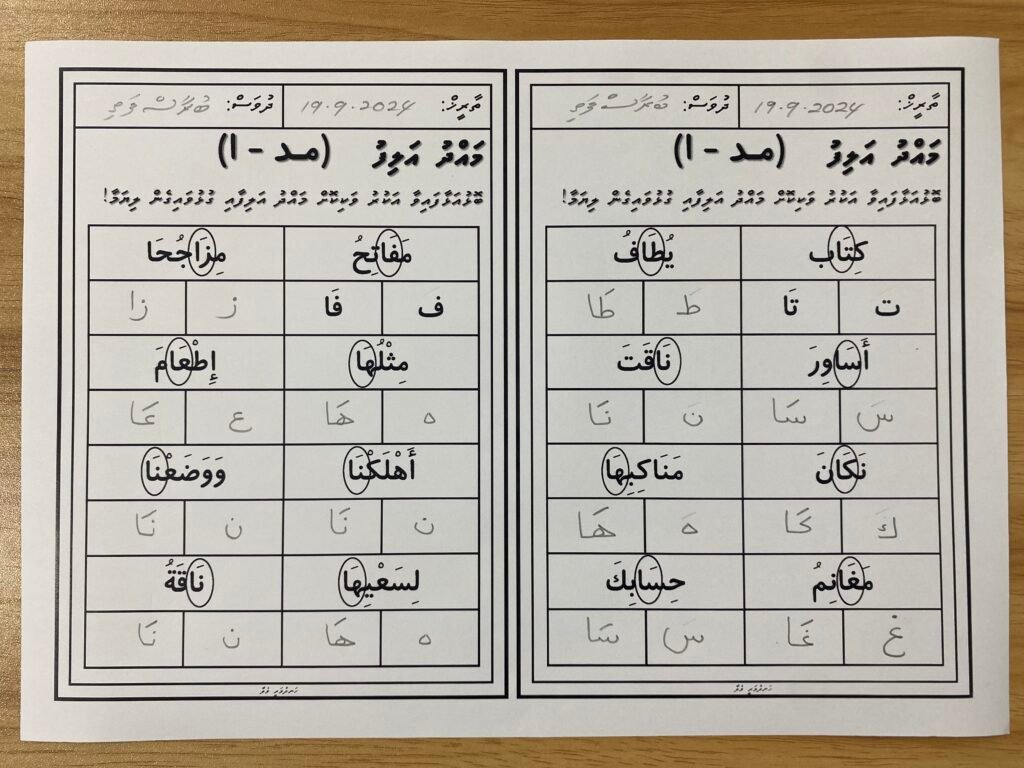 ތާރީޚް: 19.9.2024 ދުވަސް: ބުރާސްފަތި
މައްދު އަލިފު (مـد - ا)
ބޮޅުއަޅާފައިވާ އަކުރު ވަކިކޮށް މައްދު އަލިފާއި ގުޅުވައިގެން ލިޔަމާ!
كِتَاب يُطَافُ
تَ تَا طَ طَا
أَسَاوِرَ نَاقَتَ
سَ سَا نَ نَا
نَكَانَ مَنَاكِبِهَا
كَ كَا هَ هَا
مَغَانِمُ حِسَابِكَ
غَ غَا سَ سَا
ތާރީޚް: 19.9.2024 ދުވަސް: ބުރާސްފަތި
މައްދު އަލިފު (مـد - ا)
ބޮޅުއަޅާފައިވާ އަކުރު ވަކިކޮށް މައްދު އަލިފާއި ގުޅުވައިގެން ލިޔަމާ!
مَفَاتِحُ مِزَاجُحَا
فَ فَا ز زا
مِثْلُهَا إِطْعَامَ
ه هَا ع عَا
أَهْلَكْنَا وَوَضَعْنَا
ن نَا ن نَا
لِسَعْيِهَا نَاقَةُ
ه هَا ن نَا